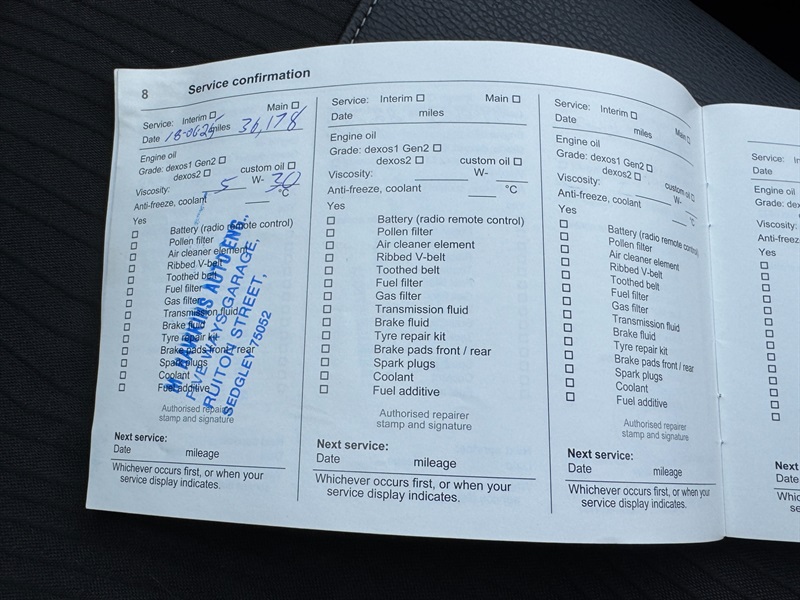 8 Service confirmation
Service: Interim ☐ Main ☐
Date miles 36,178
Engine oil
Grade: dexos1 Gen2 ☐
dexos2 ☐ custom oil ☐
Viscosity: 5 W- 30
Anti-freeze, coolant °C
Yes
☐ Battery (radio remote control)
☐ Pollen filter
☐ Air cleaner element
☐ Ribbed V-belt
☐ Toothed belt
☐ Fuel filter
☐ Gas filter
☐ Transmission fluid
☐ Brake fluid
☐ Tyre repair kit
☐ Brake pads front / rear
☐ Spark plugs
☐ Coolant
☐ Fuel additive
FIVE WAYS GARAGE,
RUITON STREET,
SEDGLEY 75052
Authorised repairer
stamp and signature
Next service:
Date mileage
Whichever occurs first, or when your
service display indicates.
Service: Interim ☐ Main ☐
Date miles
Engine oil
Grade: dexos1 Gen2 ☐
dexos2 ☐ custom oil ☐
Viscosity: W-
Anti-freeze, coolant °C
Yes
☐ Battery (radio remote control)
☐ Pollen filter
☐ Air cleaner element
☐ Ribbed V-belt
☐ Toothed belt
☐ Fuel filter
☐ Gas filter
☐ Transmission fluid
☐ Brake fluid
☐ Tyre repair kit
☐ Brake pads front / rear
☐ Spark plugs
☐ Coolant
☐ Fuel additive
Authorised repairer
stamp and signature
Next service:
Date mileage
Whichever occurs first, or when your
service display indicates.
Service: Interim ☐ Main ☐
Date miles
Engine oil
Grade: dexos1 Gen2 ☐
dexos2 ☐ custom oil ☐
Viscosity: W-
Anti-freeze, coolant °C
Yes
☐ Battery (radio remote control)
☐ Pollen filter
☐ Air cleaner element
☐ Ribbed V-belt
☐ Toothed belt
☐ Fuel filter
☐ Gas filter
☐ Transmission fluid
☐ Brake fluid
☐ Tyre repair kit
☐ Brake pads front / rear
☐ Spark plugs
☐ Coolant
☐ Fuel additive
Authorised repairer
stamp and signature
Next service:
Date mileage
Whichever occurs first, or when your
service display indicates.
Service:
Date
Engine oil
Grade:
Viscosity:
Yes
Next
Date